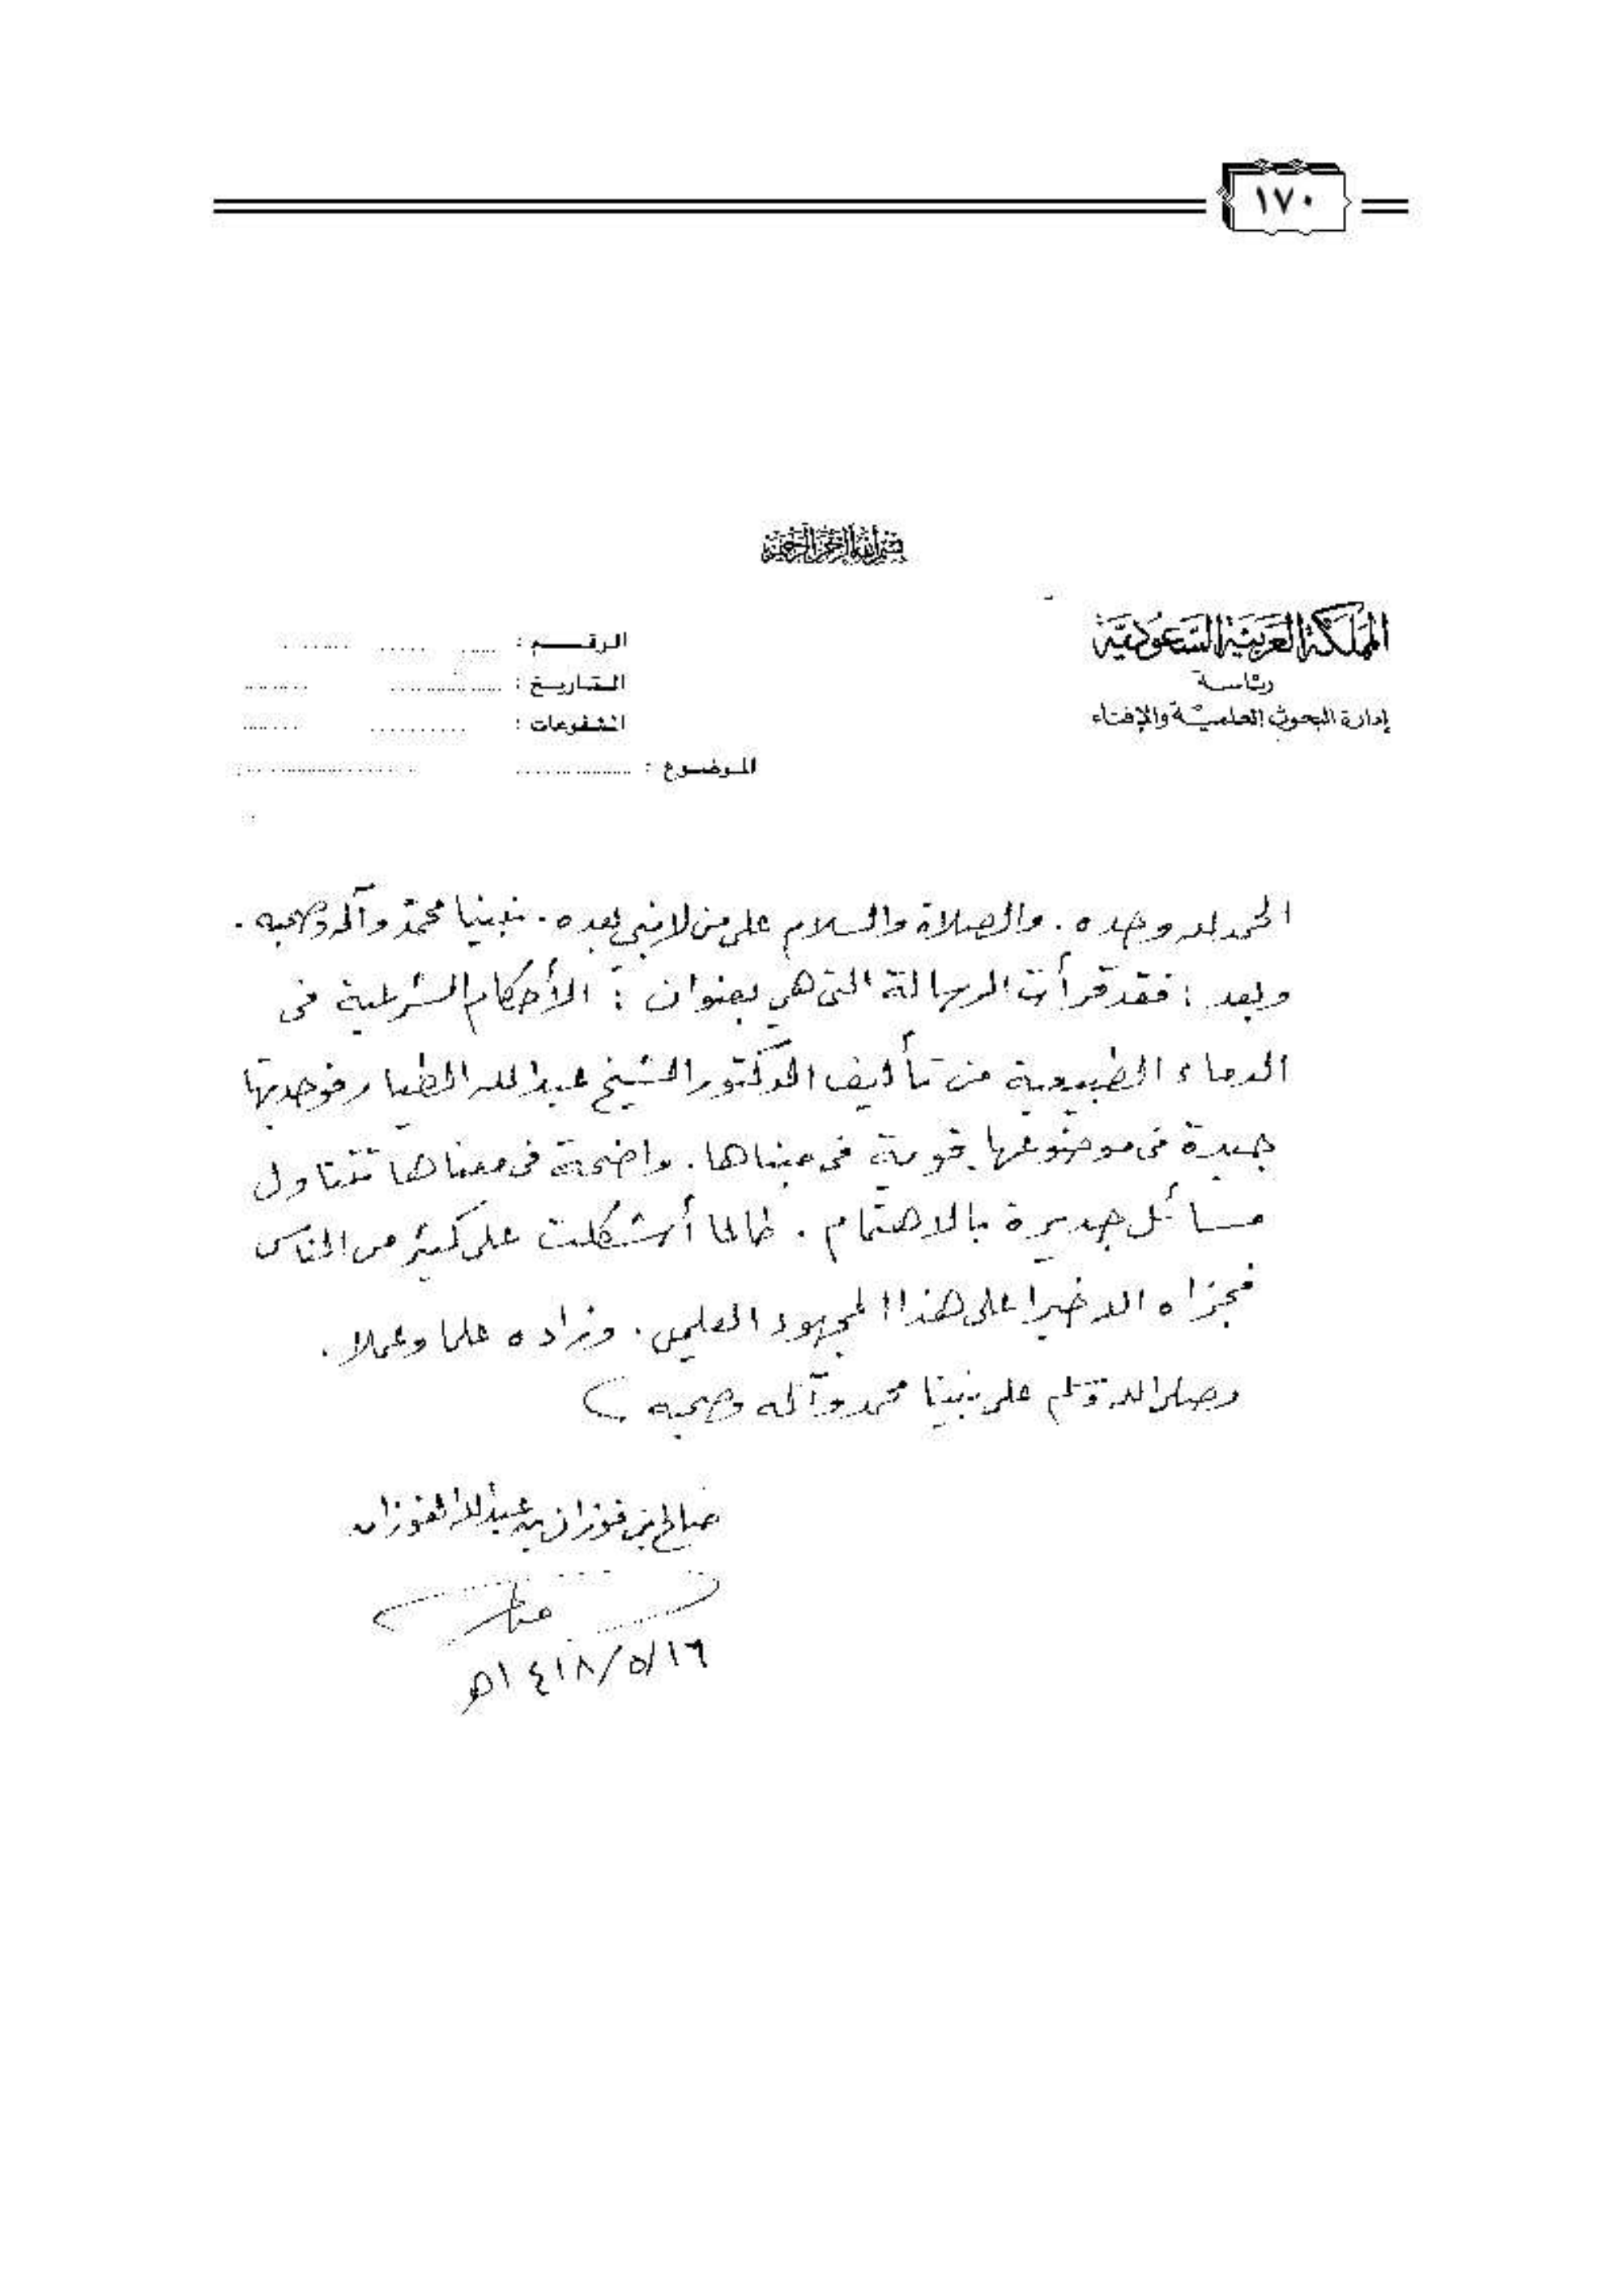 ١٧٠
بسم الله الرحمن الرحيم
المملكة العربية السعودية
رئاسة
إدارة البحوث العلمية والإفتاء
الرقم :
التاريخ :
المشفوعات :
الموضوع :
الحمد لله وحده . والصلاة والسلام على من لا نبي بعده . نبينا محمد وآله وصحبه .
وبعد : فقد قرأت الرسالة التي هي بعنوان : الأحكام الشرعية في
الدماء الطبيعية من تأليف الدكتور الشيخ عبد الله الطيار فوجدتها
جيدة في موضوعها قوية في مبناها . واضحة في معناها تتناول
مسائل جديرة بالاهتمام . طالما أشكلت على كثير من الناس
فجزاه الله خيرا على هذا المجهود العلمي . وزاده علما وعملا .
وصلى الله وسلم على نبينا محمد وآله وصحبه
صالح بن فوزان بن عبد الله الفوزان
١٤١٨/٥/١٦هـ